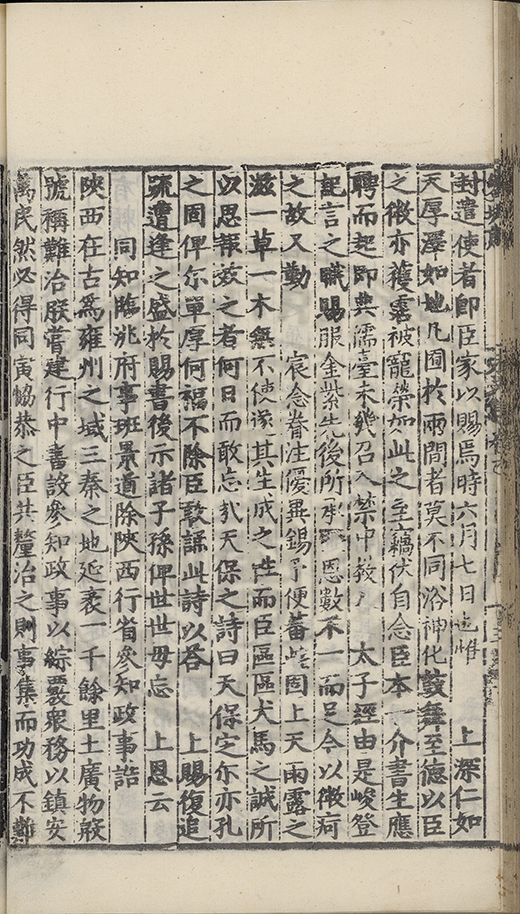 封遣使者即臣家以賜焉時六月七日惟 上深仁如
天厚澤如地凡囿於兩間者莫不同浴神化鼓舞至德以臣
之微亦獲露被寵榮如此之至藉伏自念臣本一介書生應
聘而起即典儒臺未幾召入禁中教 太子經由是峻登
記言之職賜服金紫先後所 恩數不一而足今以微痾
之故又勤 宸念眷注優異錫予便蕃 固上天雨露之
滋一草一木無不使遂其生成之性而臣區區犬馬之誠所
以思報效之者何日而敢忘哉天保之詩曰天保定尔亦孔
之固俾尔單厚何福不除臣敢誦此詩以答 上賜復追
疏遭逢之盛於賜書後示諸子孫俾世世毋忘 上恩云
同知臨洮府事班景道除陝西行省參知政事誥
陝西在古爲雍州之域三秦之地延袤一千餘里土廣物殷
號稱難治朕嘗建行中書設參知政事以綜覈衆務以鎮安
萬民然必得同寅恊恭之臣共釐治之則事集而功成不難